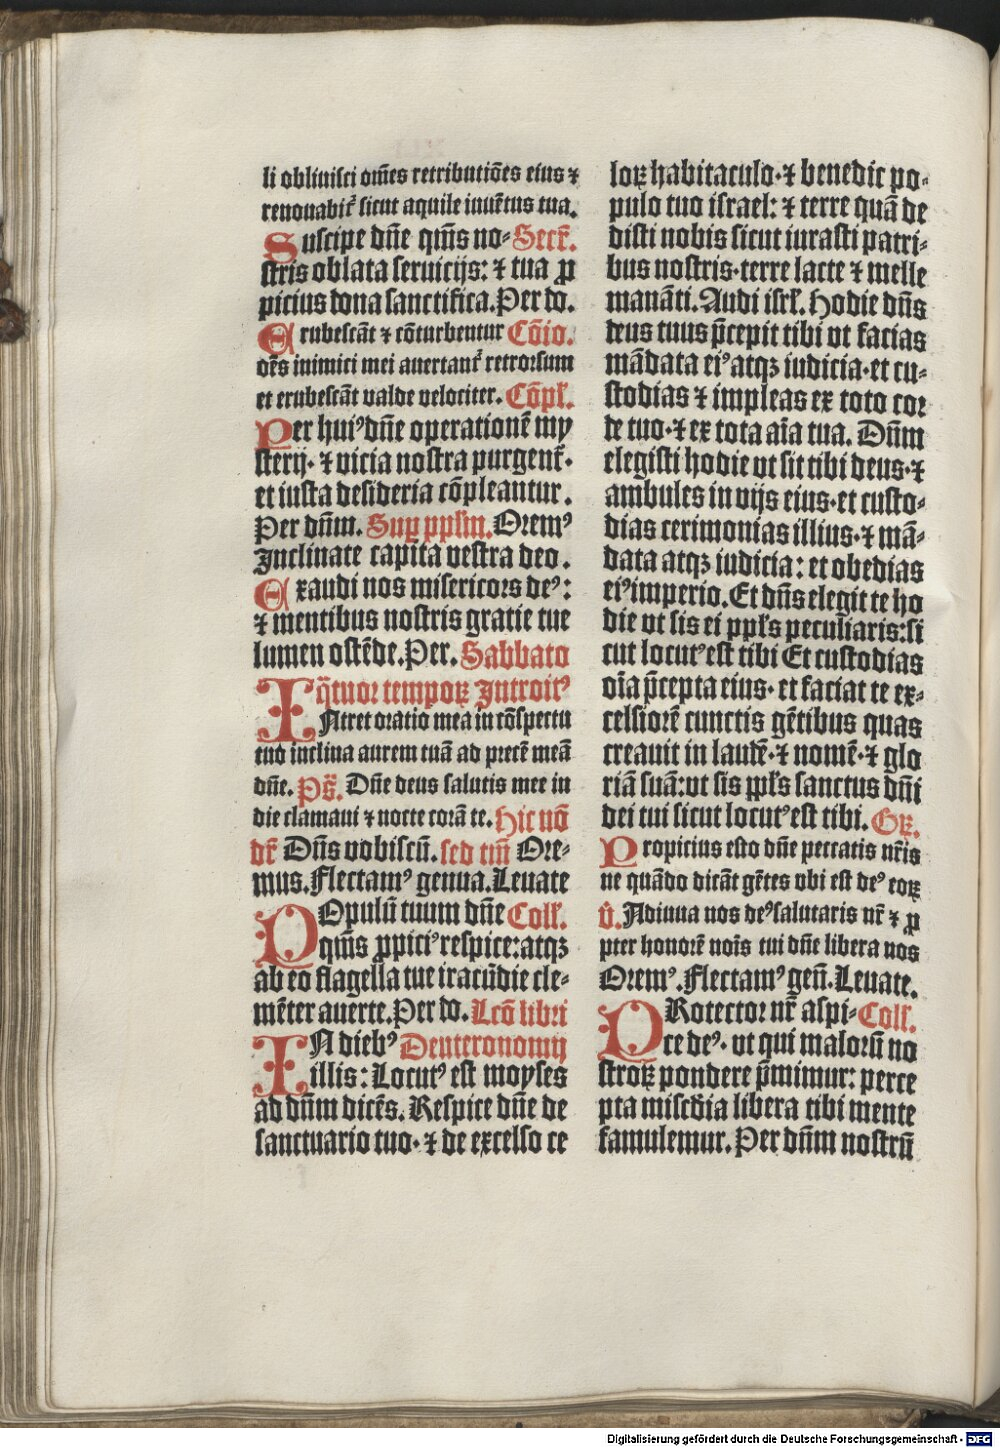 li obliuisci om̄es retributiōes eius ⁊
renouabit̄ sicut aquile iuuētus tua.
Suscipe dn̄e qm̄s no- Secr̄.
stris oblata seruicijs: ⁊ tua ꝓ
picius dona sanctifica. Per do.
Erubescāt ⁊ cōturbentur Cōio.
oēs inimici mei auertant̄ retrorsum
et erubescāt valde velociter. Cōpl̄.
Per huiꝰ dn̄e operationē my
sterij. ⁊ vicia nostra purgent̄.
et iusta desideria cōpleantur.
Per dn̄m. Suꝑ ppl̄m. Oremꝰ
Inclinate capita vestra deo.
Exaudi nos misericors deꝰ:
⁊ mentibus nostris gratie tue
lumen ostēde. Per. Sabbato
q̄tuor temporꝝ Introitꝰ
INtret oratio mea in cōspectu
tuo inclina aurem tuā ad precē meā
dn̄e. Ps̄. Dn̄e deus salutis mee in
die clamaui ⁊ nocte corā te. Hic nō
dr̄ Dn̄s vobiscū. sed tm̄ Ore-
mus. Flectamꝰ genua. Leuate
POpulū tuum dn̄e Coll̄.
qm̄s ꝓpiciꝰ respice: atqꝫ
ab eo flagella tue iracūdie cle-
mēter auerte. Per do. Lcō libri
IN diebꝰ Deuteronomij
illis: Locutꝰ est moyses
ad dn̄m dicēs. Respice dn̄e de
sanctuario tuo. ⁊ de excelso ce
lorꝝ habitaculo. ⁊ benedic po-
pulo tuo israel: ⁊ terre quā de
disti nobis sicut iurasti patri-
bus nostris. terre lacte ⁊ melle
manāti. Audi isrl̄. Hodie dn̄s
deus tuus p̄cepit tibi vt facias
mādata eiꝰ atqꝫ iudicia. et cu-
stodias ⁊ impleas ex toto cor
de tuo. ⁊ ex tota aīa tua. Dn̄m
elegisti hodie vt sit tibi deus. ⁊
ambules in vijs eius. et custo-
dias cerimonias illius. ⁊ mā-
data atqꝫ iudicia: et obedias
eiꝰ imperio. Et dn̄s elegit te ho
die vt sis ei ppl̄s peculiaris: si
cut locutꝰ est tibi Et custodias
oīa p̄cepta eius. et faciat te ex-
celsiorē cunctis gētibus quas
creauit in laudē. ⁊ nomē. ⁊ glo
riā suā: vt sis ppl̄s sanctus dn̄i
dei tui sicut locutꝰ est tibi. Gꝝ.
Propicius esto dn̄e peccatis nr̄is
ne quādo dicāt gētes vbi est deꝰ eoꝝ
v̄. Adiuua nos deꝰ salutaris nr̄ ⁊ ꝓ
pter honorē noīs tui dn̄e libera nos
Oremꝰ. Flectamꝰ gen̄. Leuate.
PRotector nr̄ aspi- Coll̄.
ce deꝰ. vt qui malorū no
strorꝝ pondere p̄mimur: perce
pta miscd̄ia libera tibi mente
famulemur. Per dn̄m nostrū
Digitalisierung gefördert durch die Deutsche Forschungsgemeinschaft - DFG